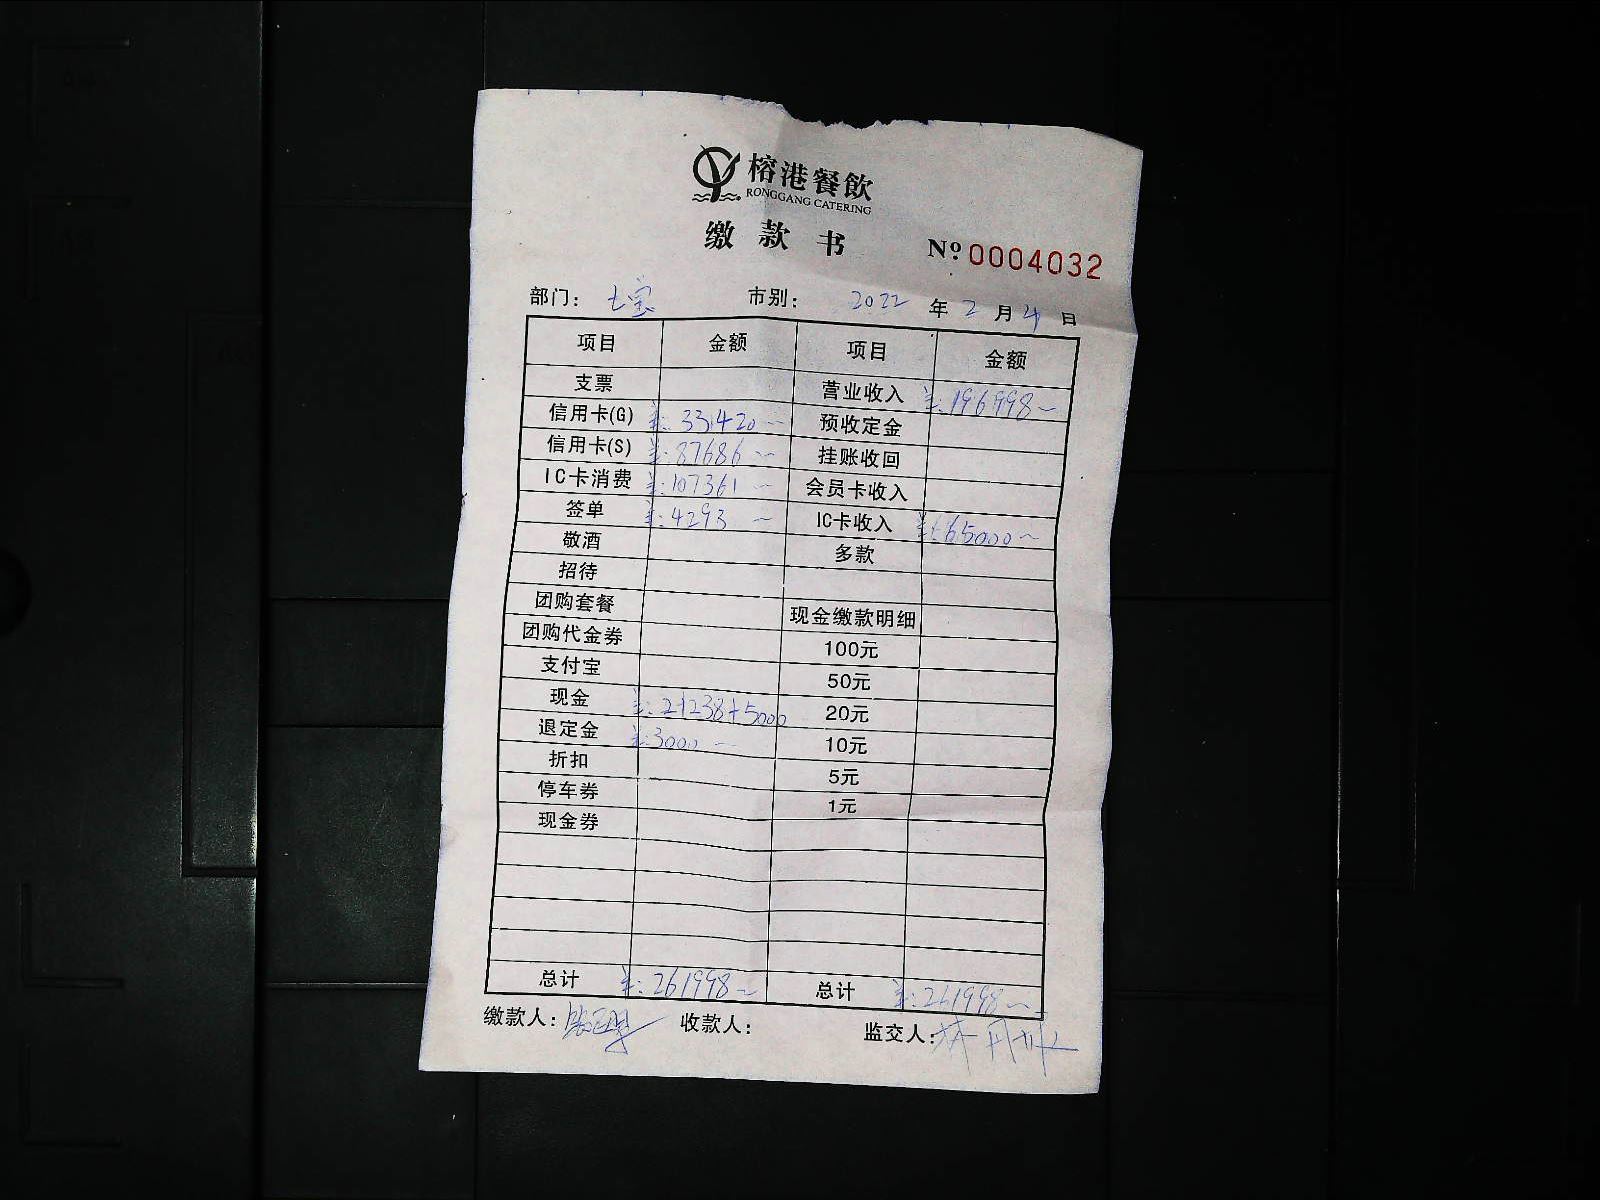 榕港餐飲
RONGGANG CATERING
缴款书 Nº 0004032
部门: 七宝 市别: 2022 年 2 月 4 日
项目 金额 项目 金额
支票 营业收入 ¥:196998~
信用卡(G) ¥:33420~ 预收定金
信用卡(S) ¥:87686~ 挂账收回
IC卡消费 ¥:107361~ 会员卡收入
签单 ¥:4293~ IC卡收入 ¥:65000~
敬酒 多款
招待
团购套餐 现金缴款明细
团购代金券 100元
支付宝 50元
现金 ¥:21238+5000 20元
退定金 ¥:3000~ 10元
折扣 5元
停车券 1元
现金券
总计 ¥:261998~ 总计 ¥:261998~
缴款人: 收款人: 监交人: